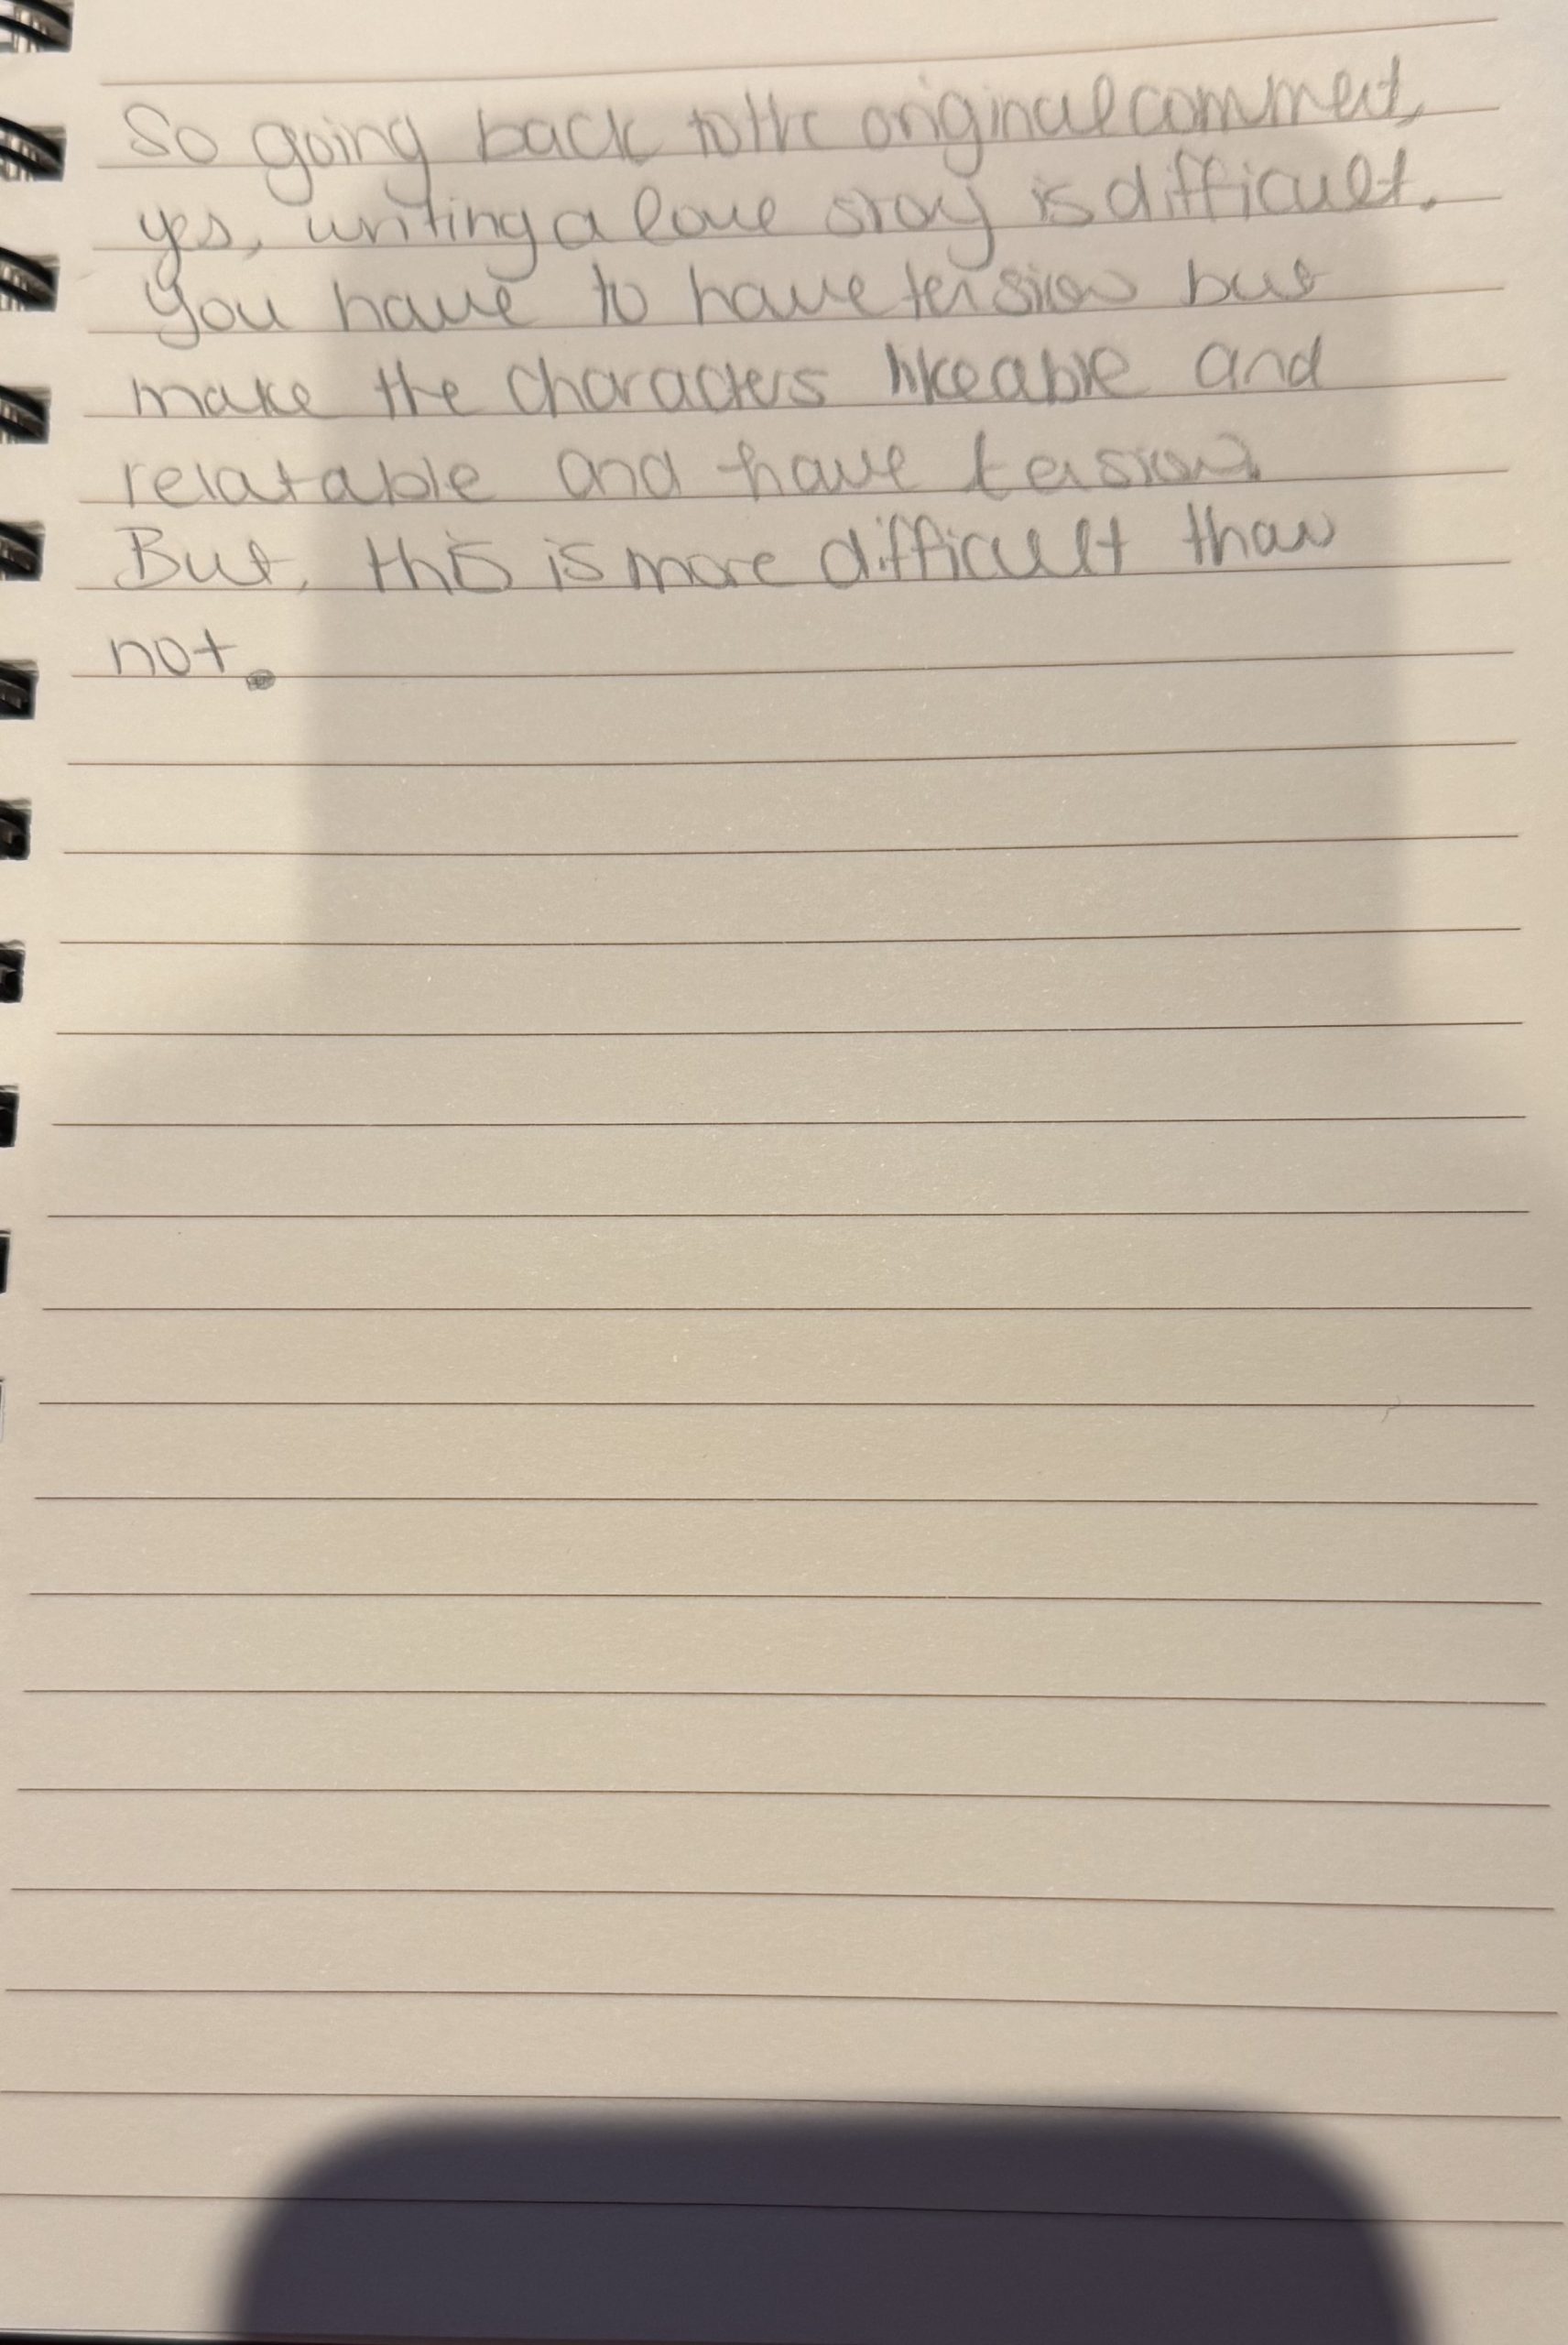 So going back to the original comment,
yes, writing a love story is difficult.
You have to have tension but
make the characters likeable and
relatable and have tension.
But, this is more difficult than
not.